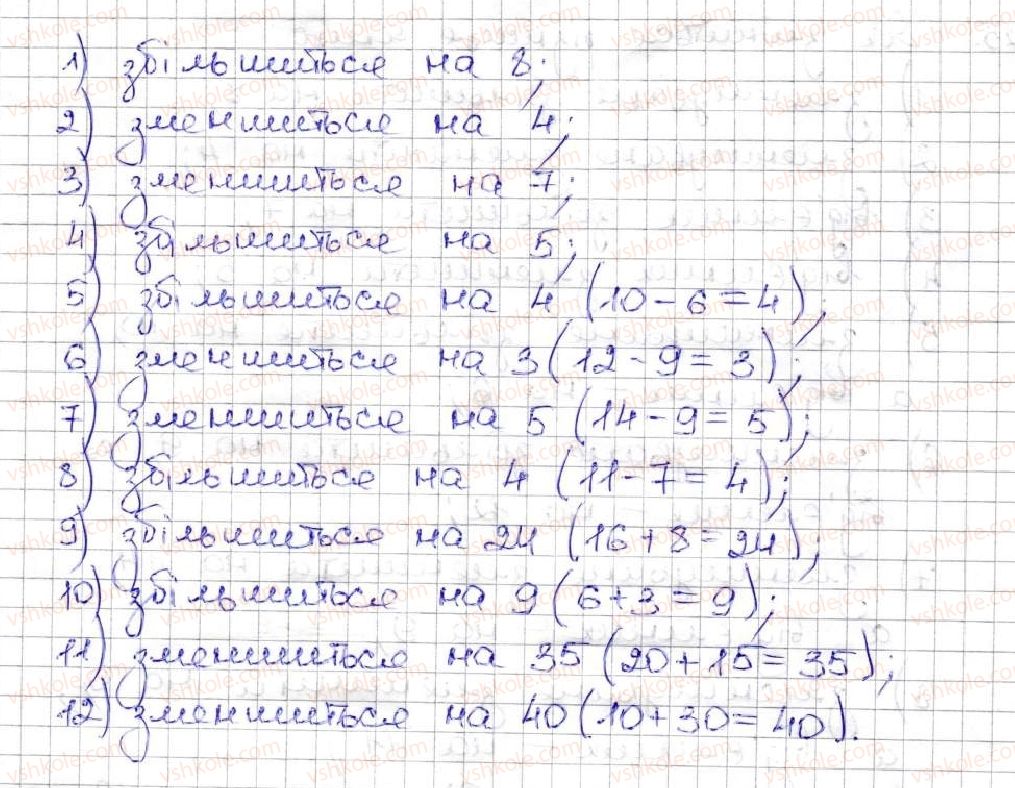 1) збільшиться на 8;
2) зменшиться на 4;
3) зменшиться на 7;
4) збільшиться на 5;
5) збільшиться на 4 (10 - 6 = 4);
6) зменшиться на 3 (12 - 9 = 3);
7) зменшиться на 5 (14 - 9 = 5);
8) збільшиться на 4 (11 - 7 = 4);
9) збільшиться на 24 (16 + 8 = 24);
10) збільшиться на 9 (6 + 3 = 9);
11) зменшиться на 35 (20 + 15 = 35);
12) зменшиться на 40 (10 + 30 = 40).